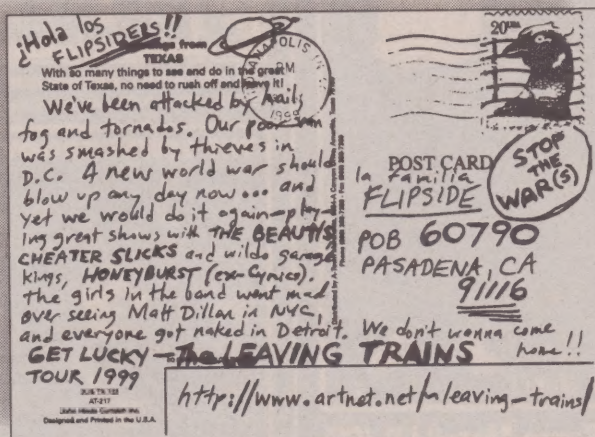 ¡Hola los
FLIPSIDERS!!
from
TEXAS
With so many things to see and do in the great
State of Texas, no need to rush off and leave it!
We've been attacked by hail,
fog and tornados. Our poor van
was smashed by thieves in
D.C. A new world war should
blow up any day now... and
yet we would do it again—play-
ing great shows with THE BEAUTYS,
CHEATER SLICKS and wildo garage
kings, HONEYBURST (ex-Cynics).
The girls in the band went mad
over seeing Matt Dillon in NYC,
and everyone got naked in Detroit. We don't wanna come
home!!
GET LUCKY — The LEAVING TRAINS
TOUR 1999
AT-217
John Hinde Curteich Inc.
Designed and Printed in the U.S.A.
PM
1999
20 USA
POST CARD
STOP
THE
WAR(S)
la familia
FLIPSIDE
POB 60790
PASADENA, CA
91116
http://www.artnet.net/~leaving-trains/